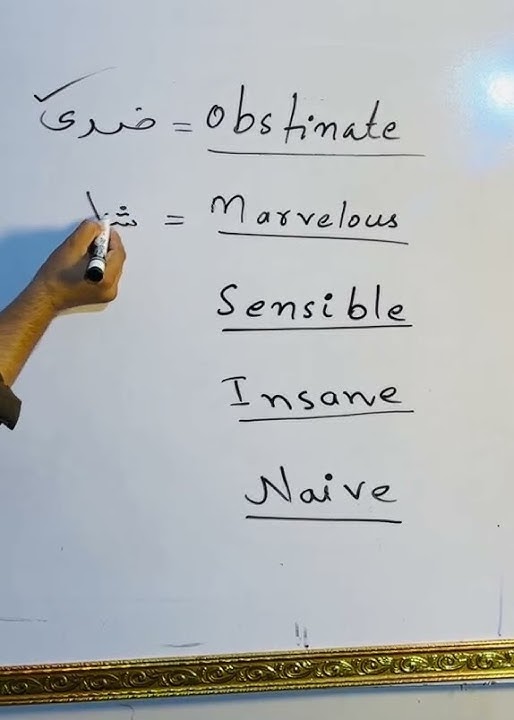 ضدی = Obstinate
= Marvelous
Sensible
Insane
Naive